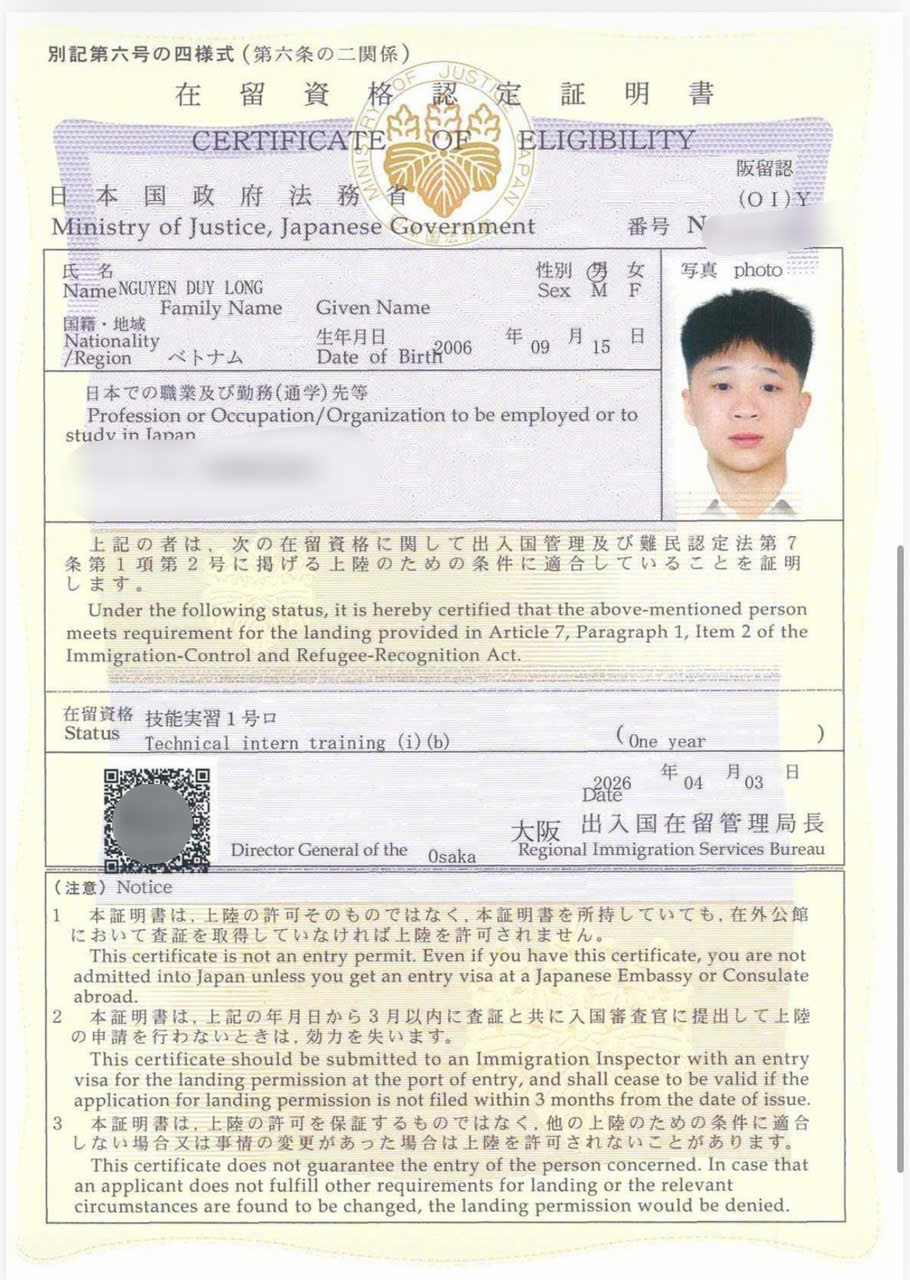 別記第六号の四様式(第六条の二関係)
在留資格認定証明書
CERTIFICATE OF ELIGIBILITY
MINISTRY OF JUSTICE JAPAN
阪留認
日本国政府法務省
(OI)Y
Ministry of Justice, Japanese Government
番号 N
氏名
性別 男 女
写真 photo
Name NGUYEN DUY LONG
Sex M F
Family Name Given Name
国籍・地域
Nationality
/Region ベトナム
生年月日 2006 年 09 月 15 日
Date of Birth
日本での職業及び勤務(通学)先等
Profession or Occupation/Organization to be employed or to
study in Japan
上記の者は、次の在留資格に関して出入国管理及び難民認定法第7
条第1項第2号に掲げる上陸のための条件に適合していることを証明
します。
Under the following status, it is hereby certified that the above-mentioned person
meets requirement for the landing provided in Article 7, Paragraph 1, Item 2 of the
Immigration-Control and Refugee-Recognition Act.
在留資格 技能実習1号ロ
Status Technical intern training (i)(b) (One year)
2026 年 04 月 03 日
Date
大阪 出入国在留管理局長
Director General of the Osaka Regional Immigration Services Bureau
(注意) Notice
1 本証明書は、上陸の許可そのものではなく、本証明書を所持していても、在外公館
において査証を取得していなければ上陸を許可されません。
This certificate is not an entry permit. Even if you have this certificate, you are not
admitted into Japan unless you get an entry visa at a Japanese Embassy or Consulate
abroad.
2 本証明書は、上記の年月日から3月以内に査証と共に入国審査官に提出して上陸
の申請を行わないときは、効力を失います。
This certificate should be submitted to an Immigration Inspector with an entry
visa for the landing permission at the port of entry, and shall cease to be valid if the
application for landing permission is not filed within 3 months from the date of issue.
3 本証明書は、上陸の許可を保証するものではなく、他の上陸のための条件に適合
しない場合又は事情の変更があった場合は上陸を許可されないことがあります。
This certificate does not guarantee the entry of the person concerned. In case that
an applicant does not fulfill other requirements for landing or the relevant
circumstances are found to be changed, the landing permission would be denied.